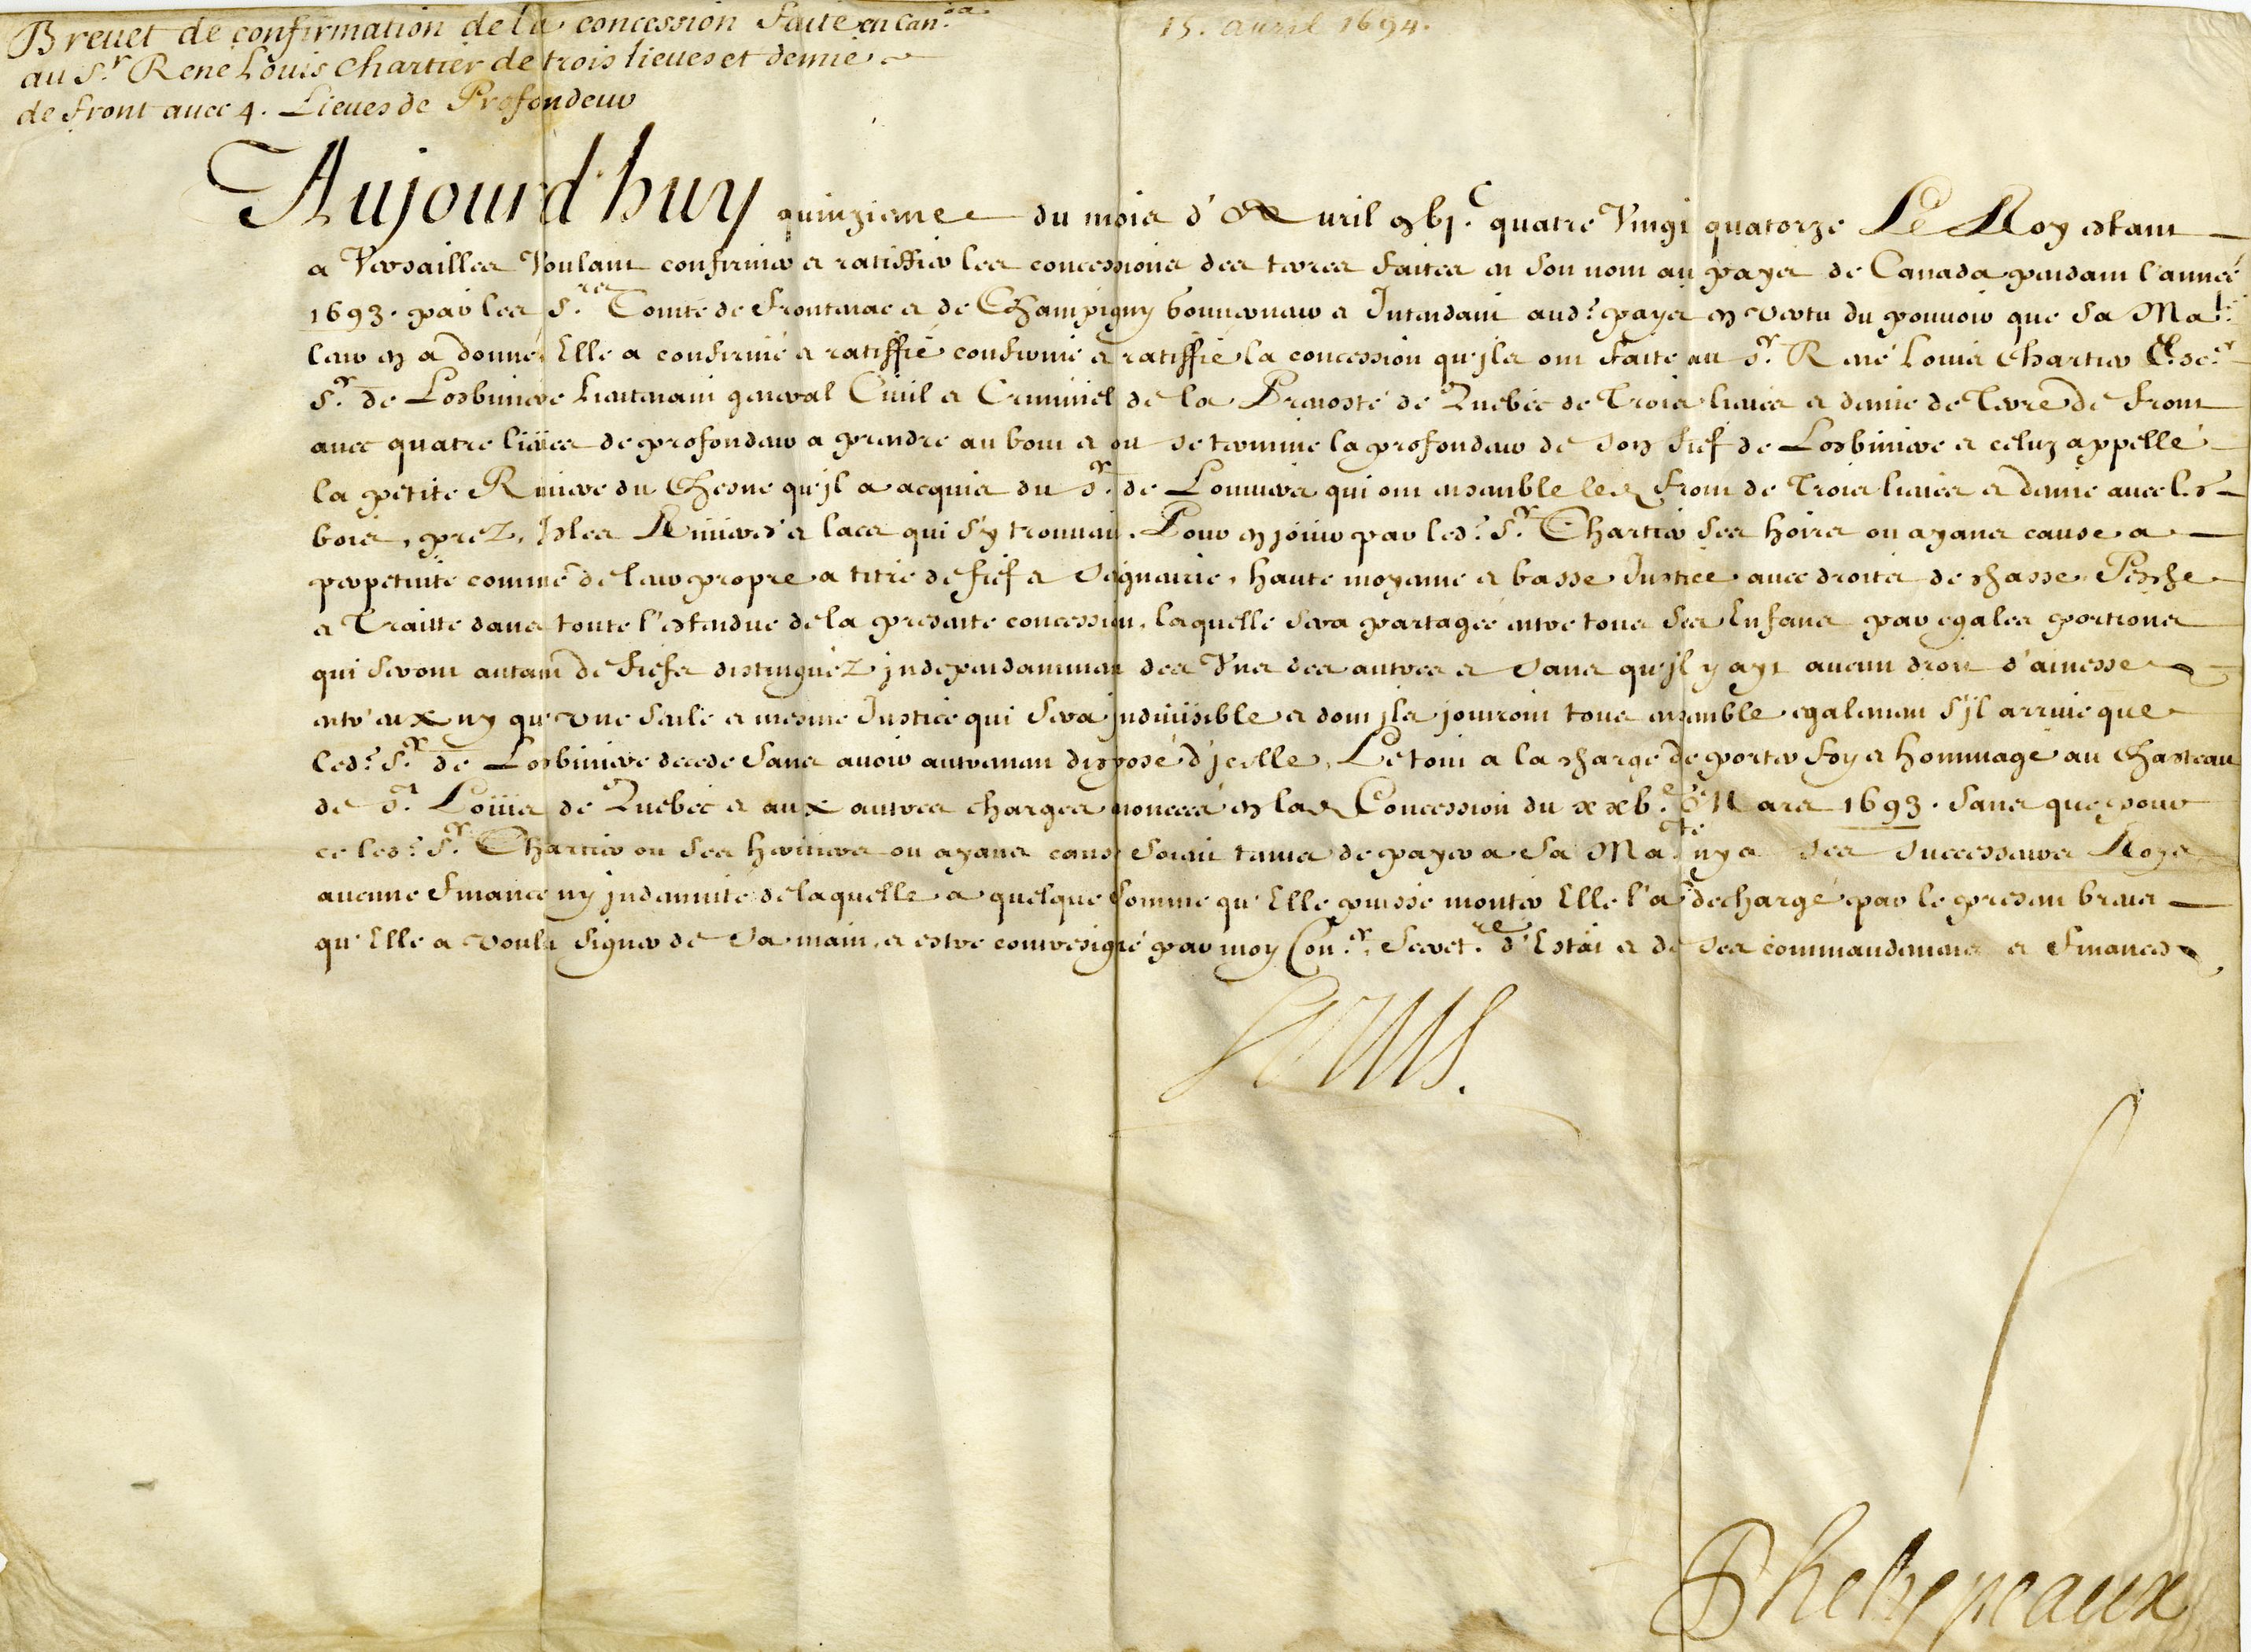 Breuet de confirmation de la concession faite en Can.da
15. auril 1694.
au S.r René Louis Chartier de trois lieues et demie
de front auec 4. Lieues de Profondeur
Aujourd'huy quinzieme du mois d'Auril gbj.c quatre Vingt quatorze Le Roy estant
a Versailles Voulant confirmer et ratiffier les concessions des terres faites en son nom au payis de Canada pendant l'année
1693. par les S.rs Comte de Frontenac et de Champigny Gouuerneur et Intendant aud.t payis en vertu du pouuoir que sa Ma.té
leur en a donné Elle a confirmé et ratiffié confirme et ratiffie la concession qu'jls ont faite au S.r René Louis Chartier Esc.r
S.r de Lotbiniere Lieutenant general Ciuil et Criminel de la Preuosté de Quebec de Trois lieües et demie de Terre de front
auec quatre liëues de profondeur a prendre au bout et ou se termine la profondeur de son fief de Lotbiniere et celuy appellé
la petite Riuiere du Chesne qu'jl a acquis du S.r de Louuiers qui ont ensemble les front de Trois lieües et demie auec les
bois, prez, Isles Riuieres et lacs qui s'y trouuent. Pour en jouir par led.t S.r Chartier ses hoirs ou ayans cause a
perpetuité comme de leur propre a titre de fief et seigneurie, haute moyenne et basse Justice auec droits de chasse Pesche
et Traitte dans toute l'estendue de la presente concession, laquelle sera partagée entre tous ses Enfans par egales portions
qui seront autant de fiefs distinguez independamment des Vns des autres et sans qu'jl y ayt aucun droit d'ainesse
entr'eux ny qu'vne seule et mesme Justice qui sera jndiuisible et dont jls jouiront tous ensemble egalement s'jl arriue que
led.t S.r de Lotbiniere decede sans auoir autrement disposé d'jcelle, Le tout a la charge de porter foy et hommage au Chasteau
de S.t Loüis de Quebec et aux autres charges enoncées en la Concession du xxb.e Mars 1693. sans que pour
ce led.t S.r Chartier ou ses heritiers ou ayans cause soient tenus de payer a Sa Ma.té ny a ses successeurs Roys
aucune finance ny jndemnité de laquelle a quelque somme qu'Elle puisse monter Elle l'a dechargé par le present breuet
qu'Elle a voulu signer de sa main, et estre contresigné par moy Con.er Secret.re d'Estat et de ses commandemens et finances
Louis.
Phelypeaux